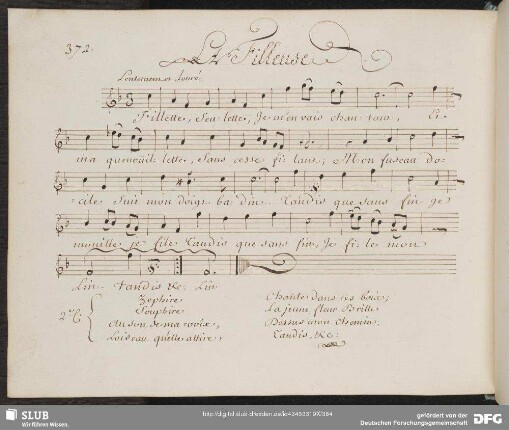 372.
La Filleuse
Lentement et Louré
Fillette, Seulette, Je m'en vais chantant, Et
ma quenouillette, Sans cesse filant; Mon fuseau do-
cile Suit mon doigt badin Tandis que sans fin, je
mouille je file Tandis que sans fin, Je file mon
Lin Tandis &c: Lin
2e C:
Zephire
Soupire
Au son de ma voix,
Loiseau quelle attire,
Chante dans ces bois;
La jeune fleur Brille
Dessus mon Chemin,
Tandis, &c:
SLUB
Wir führen Wissen.
gefördert von der
Deutschen Forschungsgemeinschaft
DFG